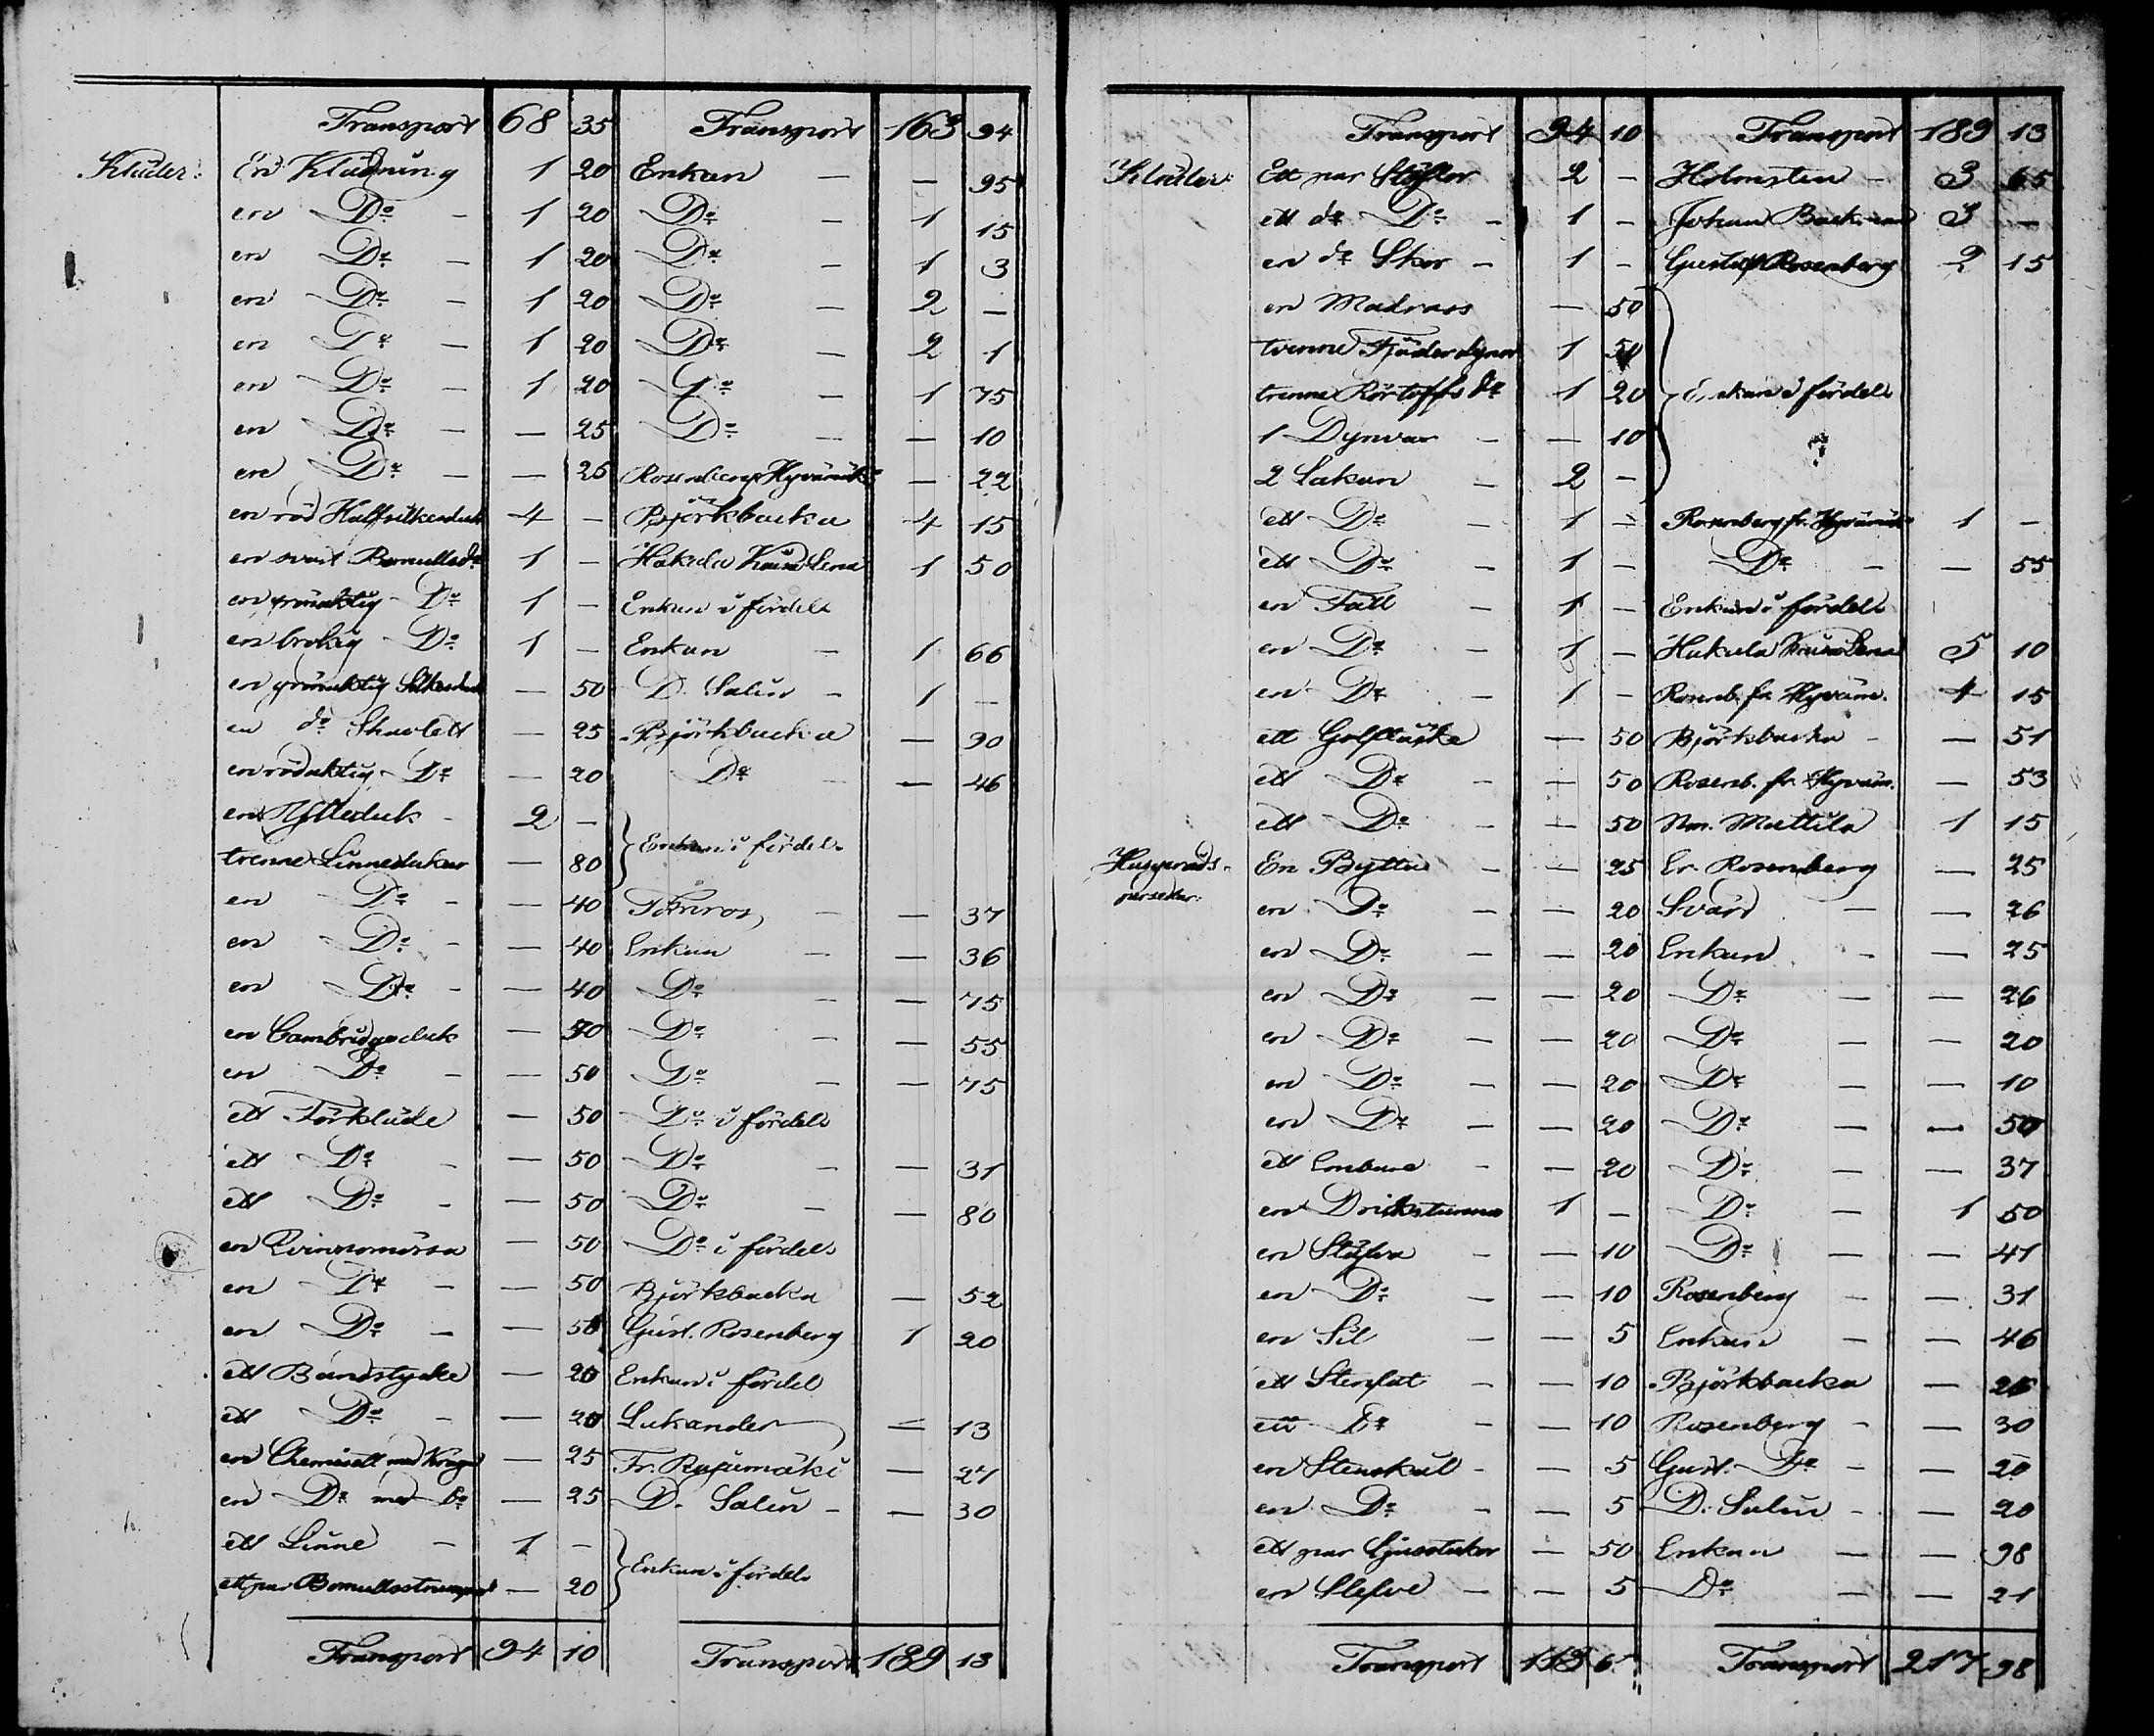 Transport 68 35 Transport 163 94
Kläder: En Klädning 1 20 Enkan — — 95
en Do - 1 20 Do — 1 15
en Do — 1 20 Do — 1 3
en Do - 1 20 Do — 2 —
en Do — 1 20 Do — 2 1
en Do - 1 20 Do — 1 75
en Do — — 25 Do — — 10
en Do — — 25 Rosenberg Hyvämäki — 22
en röd Halfsilkesduk 4 - Björkbacka 4 15
en svart Bomullsdo 1 - Hakula Kaisa Lena 1 50
en grönaktig Do 1 - Enkan i fördel
en brokig Do 1 - Enkan — 1 66
en grönaktig Silkesduk — 50 D. Salin - 1 —
en do Shavlett — 25 Björkbacka — 90
en rödaktig Do — 20 Do — — 46
en Ylleduk - 2 —
trenne Linnedukar — 80 } Enkan i fördel
en Do - — 40 Törnros, — — 37
en Do - — 40 Enkan — — 36
en Do - — 40 Do — — 75
en Cambridgeduk — 50 Do — — 55
en Do - — 50 Do — — 75
ett Förkläde — 50 Do i fördel
ett Do - — 50 Do — — 31
ett Do - — 50 Do — — 80
en Qvinnomössa — 50 Do i fördel
en Do - — 50 Björkbacka — 52
en Do — — 50 Gust. Rosenberg 1 20
ett Bandstycke — 20 Enkan i fördel
ett Do - — 20 Lukander — 13
en Chemisett med Krage — 25 Fr. Rajumäki — 27
en Do med Do — 25 D. Salin - — 30
ett Linne — 1 -
ett par Bomullsstrumpor — 20 } Enkan i fördel
Transport 94 10 Transport 189 13
Transport 94 10 Transport 189 13
Kläder: Ett par Stöflor 2 - Holmsten - 3 65
ett do Do - 1 - Johan Backman 3 —
en do Skor - 1 - Gustaf Rosenberg 2 15
en Madrass — 50
trenne Fjäderdynor 1 50
trenne do 1 20 } Enkan i fördel
1 Dynvar - — 10
2 Lakan — 2 -
ett Do - 1 - Rosenberg fr. Hyvämäki 1 —
ett Do - 1 - Do - — 55
en Fäll - 1 - Enkan i fördel
en Do - 1 - Hakula Kaisa Lena 5 10
en Do - 1 - Rosenb. fr. Hyväm. 4 15
ett Golftäcke — 50 Björkbacka - — 51
ett Do - — 50 Rosenb. fr. Hyväm. — 53
ett Do - — 50 Nm. Mattila 1 15
Husgeråds- En Bytta - — 25 Er. Rosenberg — 25
persedlar: en Do — — 20 Svärd — — 26
en Do — — 20 Enkan - — 25
en Do — — 20 Do — — 26
en Do — — 20 Do — — 20
en Do — — 20 Do — — 10
en Do — — 20 Do — — 50
ett Embare - — 20 Do — — 37
en Drickstunna 1 - Do — 1 50
en Stäfva - — 10 Do — — 41
en Do — — 10 Rosenberg - — 31
en Sil — — 5 Enkan — — 46
ett Stenfat - — 10 Björkbacka — 26
ett Do - — 10 Rosenberg - — 30
en Stenskål - — 5 Gust. Do - — 20
en Do - — 5 D. Salin - — 20
ett par Ljusstakar — 50 Enkan — — 98
en Slefve — — 5 Do — — 21
Transport 113 6 Transport 217 98